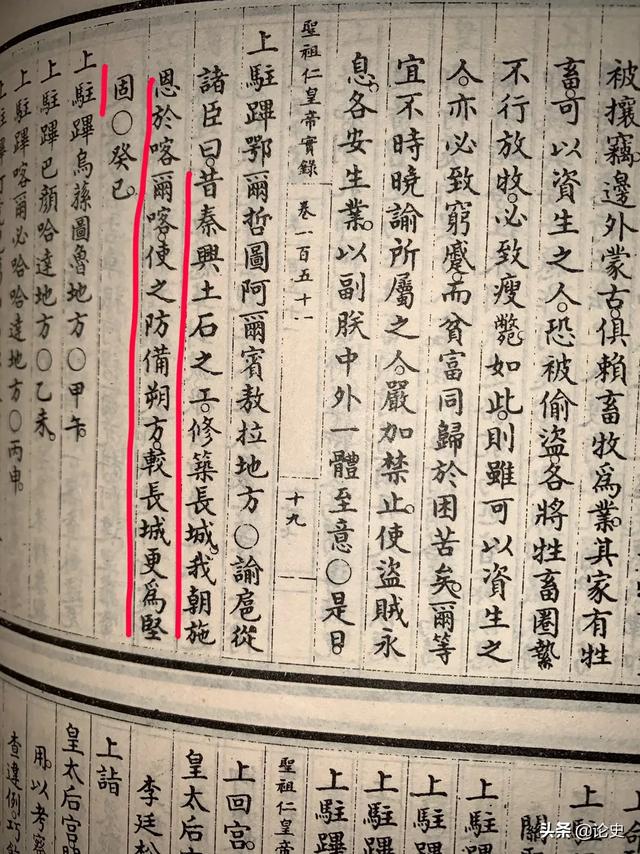 被攘竊。邊外蒙古。俱賴畜牧爲業。其家有牲
畜。可以資生之人。恐被偷盜。各將牲畜圈縶
不行放牧。必致瘦斃。如此。則雖可以資生之
人。亦必致窮蹙。而貧富同歸於困苦矣。爾等
宜不時曉諭所屬之人。嚴加禁止。使盜賊永
息。各安生業。以副朕中外一體至意○是日。
聖祖仁皇帝實錄 卷一百五十一 十九
上駐蹕鄂爾哲圖阿爾賓敖拉地方○諭扈從
諸臣曰。昔秦興土石之工。修築長城。我朝施
恩於喀爾喀。使之防備朔方。較長城更爲堅
固○癸巳。
上駐蹕烏孫圖魯地方○甲午。
上駐蹕巴顏哈達地方○乙未。
上駐蹕喀爾必哈哈達地方○丙申。
上駐蹕
上
上駐蹕
上駐蹕
上駐蹕
上駐蹕
聖祖仁皇帝
上回宮。
皇太后
李廷松
上詣
皇太后宮
用。以考察
查違例。巧
头条@论史